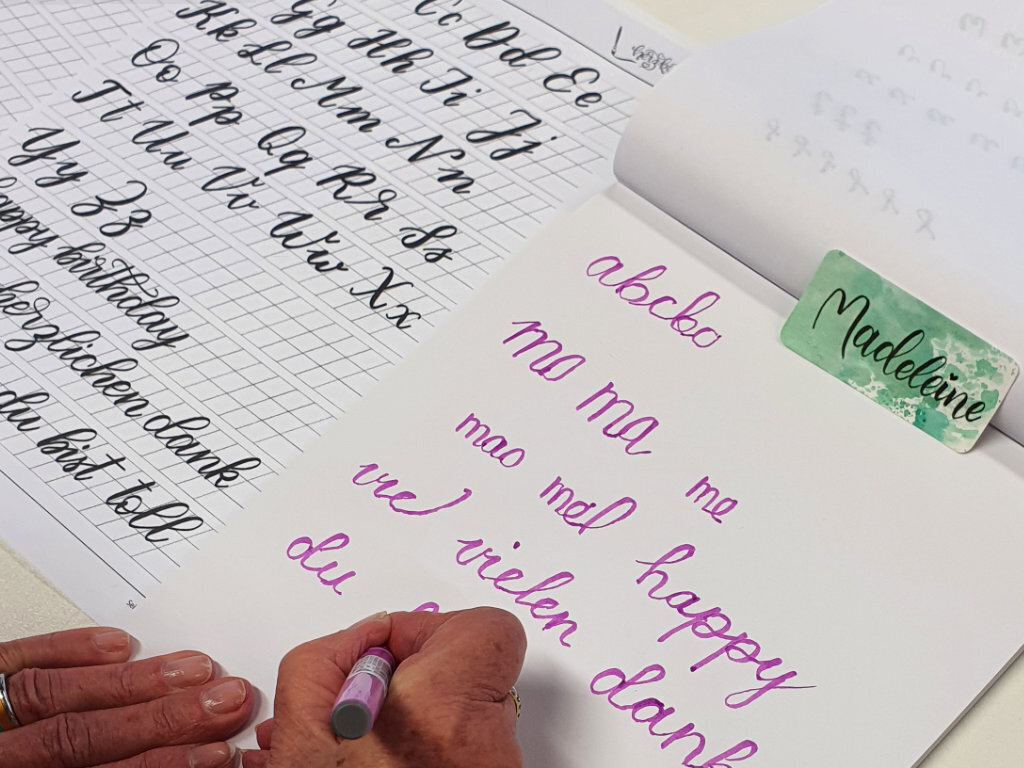 Cc Dd Ee
Gg Hh Ii Jj
Kk Ll Mm Nn
Oo Pp Qq Rr Ss
Tt Uu Vv Ww Xx
Yy Zz
happy birthday
herzlichen dank
du bist toll
Madeleine
abcbo
ma ma
mao mel me
viel vielen happy
du
dank